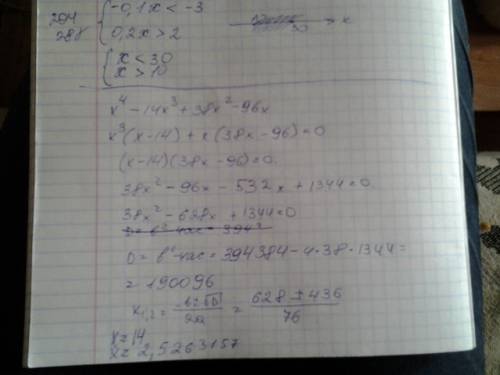 294
288
{ -0,1x < -3
{ 0,2x > 2
30 x
{ x < 30
{ x > 10
x⁴ - 14x³ + 38x² - 96x
x³(x-14) + x(38x-96) = 0
(x-14)(38x-96) = 0
38x² - 96x - 532x + 1344 = 0
38x² - 628x + 1344 = 0
D = b² - 4ac = 394²
D = b² - 4ac = 394384 - 4·38·1344 =
= 190096
x₁,₂ = -b±√D / 2a = 628 ± 436 / 76
x = 14
x = 2,5263157